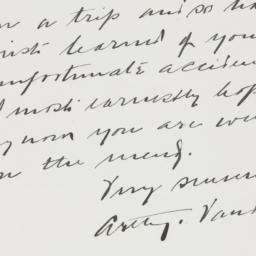 a trip and so
just learned of your
unfortunate accident
most earnestly hope
now you are
on the mend.
Very sincer